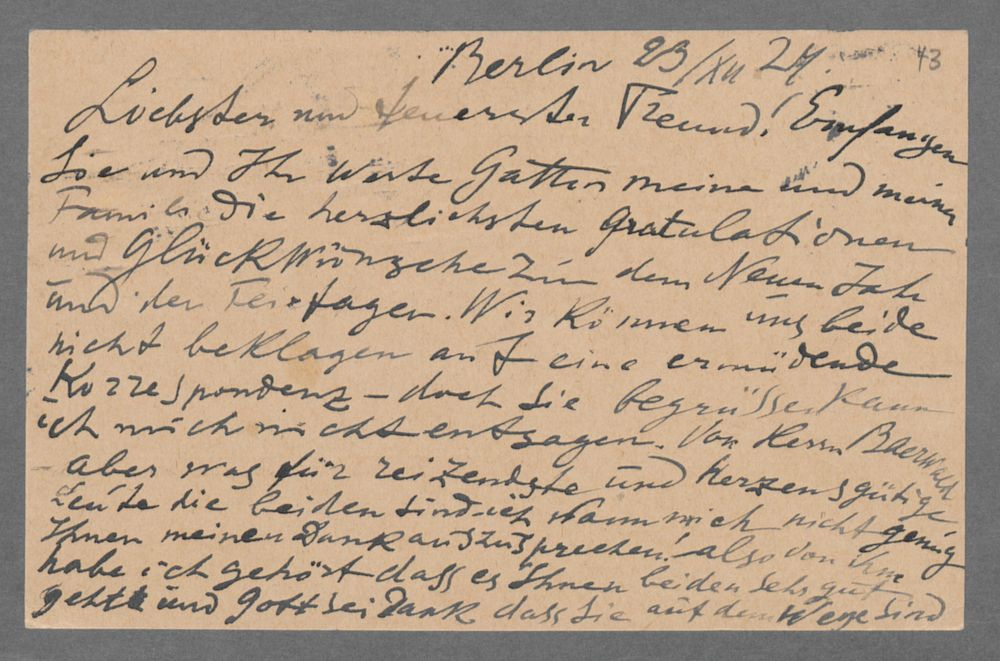 Berlin 23/XII 27. 43
Liebster und teuerster Freund! Emfangen
Sie und Ihr werte Gattin meine und meiner
Famili die herzlichsten gratulationen
und Glückwünsche zum dem Neuen Jahr
und der Feiertagen. Wir können uns beide
nicht beklagen auf eine ermüdende
Korrespondenz – doch Sie begrüssen kann
ich mich nicht entsagen. Von Herrn Baerwald
– aber was für reizendste und herzensgütige
Leute die beiden sind ich kann mich nicht genug
Ihnen meinen Dank auszusprechen! also von ihm
habe ich gehört dass es Ihnen beiden sehr gut
geht und Gott sei Dank dass Sie auf dem Wege sind